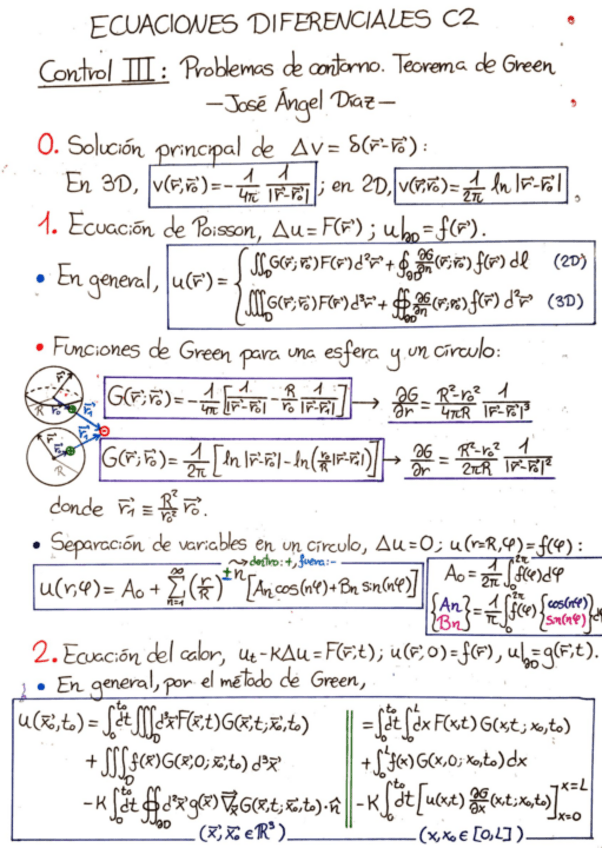 ECUACIONES DIFERENCIALES C2
Control III: Problemas de contorno. Teorema de Green
—José Ángel Díaz—
0. Solución principal de Δv = δ(r⃗-r⃗₀):
En 3D, v(r⃗;r⃗₀) = -1/4π 1/|r⃗-r⃗₀| ; en 2D, v(r⃗;r⃗₀) = 1/2π ln|r⃗-r⃗₀|,
1. Ecuación de Poisson, Δu = F(r⃗) ; u|∂D = f(r⃗).
• En general, u(r⃗) = {
∬_D G(r⃗;r⃗₀)F(r⃗)d²r⃗ + ∮_∂D ∂G/∂n (r⃗;r⃗₀) f(r⃗) dl (2D)
∭_D G(r⃗;r⃗₀)F(r⃗)d³r⃗ + ∯_∂D ∂G/∂n (r⃗;r⃗₀) f(r⃗) d²r⃗ (3D)
• Funciones de Green para una esfera y un círculo:
r⃗ R r⃗₀ r⃗₁
G(r⃗;r⃗₀) = -1/4π [1/|r⃗-r⃗₀| - R/r₀ 1/|r⃗-r⃗₁|] → ∂G/∂r = R²-r₀²/4πR 1/|r⃗-r⃗₀|³
r⃗₀ r⃗₁ R
G(r⃗;r⃗₀) = 1/2π [ln|r⃗-r⃗₀| - ln(r₀/R |r⃗-r⃗₁|)] → ∂G/∂r = R²-r₀²/2πR 1/|r⃗-r⃗₀|²
donde r⃗₁ ≡ R²/r₀² r⃗₀.
• Separación de variables en un círculo, Δu = 0; u(r=R,φ) = f(φ):
dentro: +, fuera: -
u(r,φ) = A₀ + Σ_{n=1}^{∞} (r/R)^{±n} [An cos(nφ) + Bn sin(nφ)]
A₀ = 1/2π ∫₀^{2π} f(φ)dφ
{An Bn} = 1/π ∫₀^{2π} f(φ) {cos(nφ) sin(nφ)} dφ
2. Ecuación del calor, u_t - KΔu = F(r⃗;t); u(r⃗,0) = f(r⃗), u|∂D = g(r⃗,t).
• En general, por el método de Green,
u(x⃗₀,t₀) = ∫₀^{t₀} dt ∭_D d³x⃗ F(x⃗,t) G(x⃗,t;x⃗₀,t₀)
+ ∭_D f(x⃗) G(x⃗,0;x⃗₀,t₀) d³x⃗
- K ∫₀^{t₀} dt ∯_∂D d²x⃗ g(x⃗) ∇⃗_x⃗ G(x⃗,t;x⃗₀,t₀)·n̂
(x⃗,x⃗₀ ∈ ℝ³)
= ∫₀^{t₀} dt ∫₀^L dx F(x,t) G(x,t;x₀,t₀)
+ ∫₀^L f(x) G(x,0;x₀,t₀) dx
- K ∫₀^{t₀} dt [u(x,t) ∂G/∂x (x,t;x₀,t₀)]_{x=0}^{x=L}
(x,x₀ ∈ [0,L])